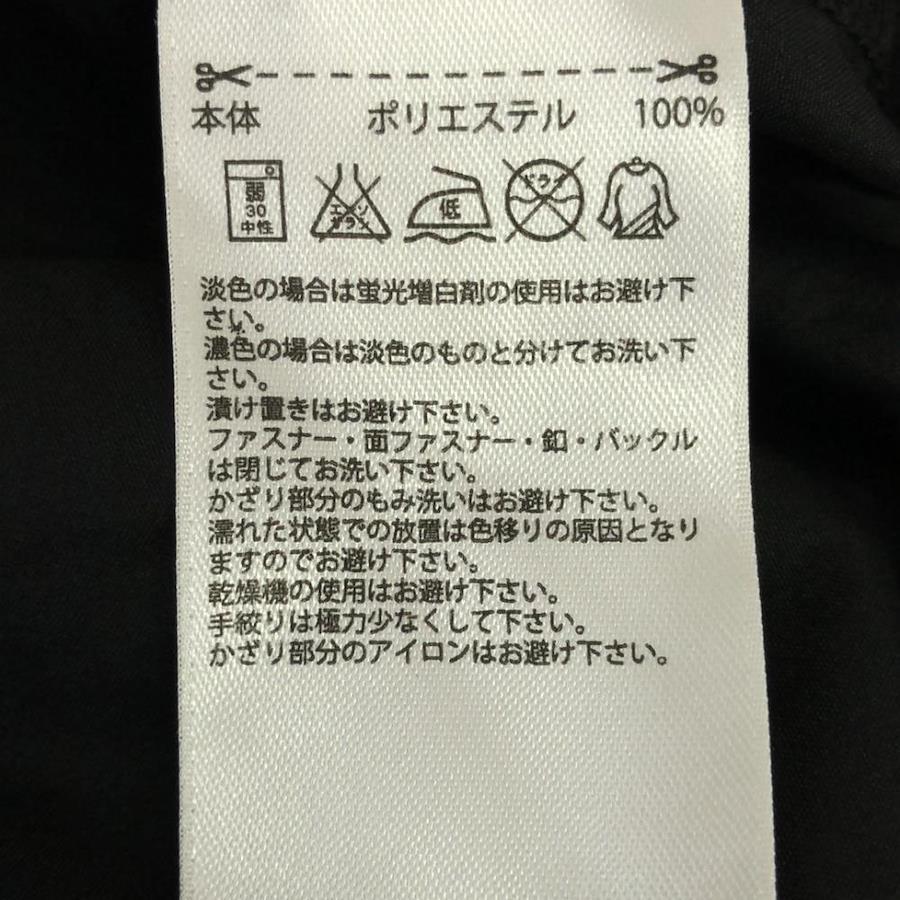 本体 ポリエステル 100%
弱
30
中性
エンソ
サラシ
低
ドライ
淡色の場合は蛍光増白剤の使用はお避け下
さい。
濃色の場合は淡色のものと分けてお洗い下
さい。
漬け置きはお避け下さい。
ファスナー・面ファスナー・釦・バックル
は閉じてお洗い下さい。
かざり部分のもみ洗いはお避け下さい。
濡れた状態での放置は色移りの原因となり
ますのでお避け下さい。
乾燥機の使用はお避け下さい。
手絞りは極力少なくして下さい。
かざり部分のアイロンはお避け下さい。